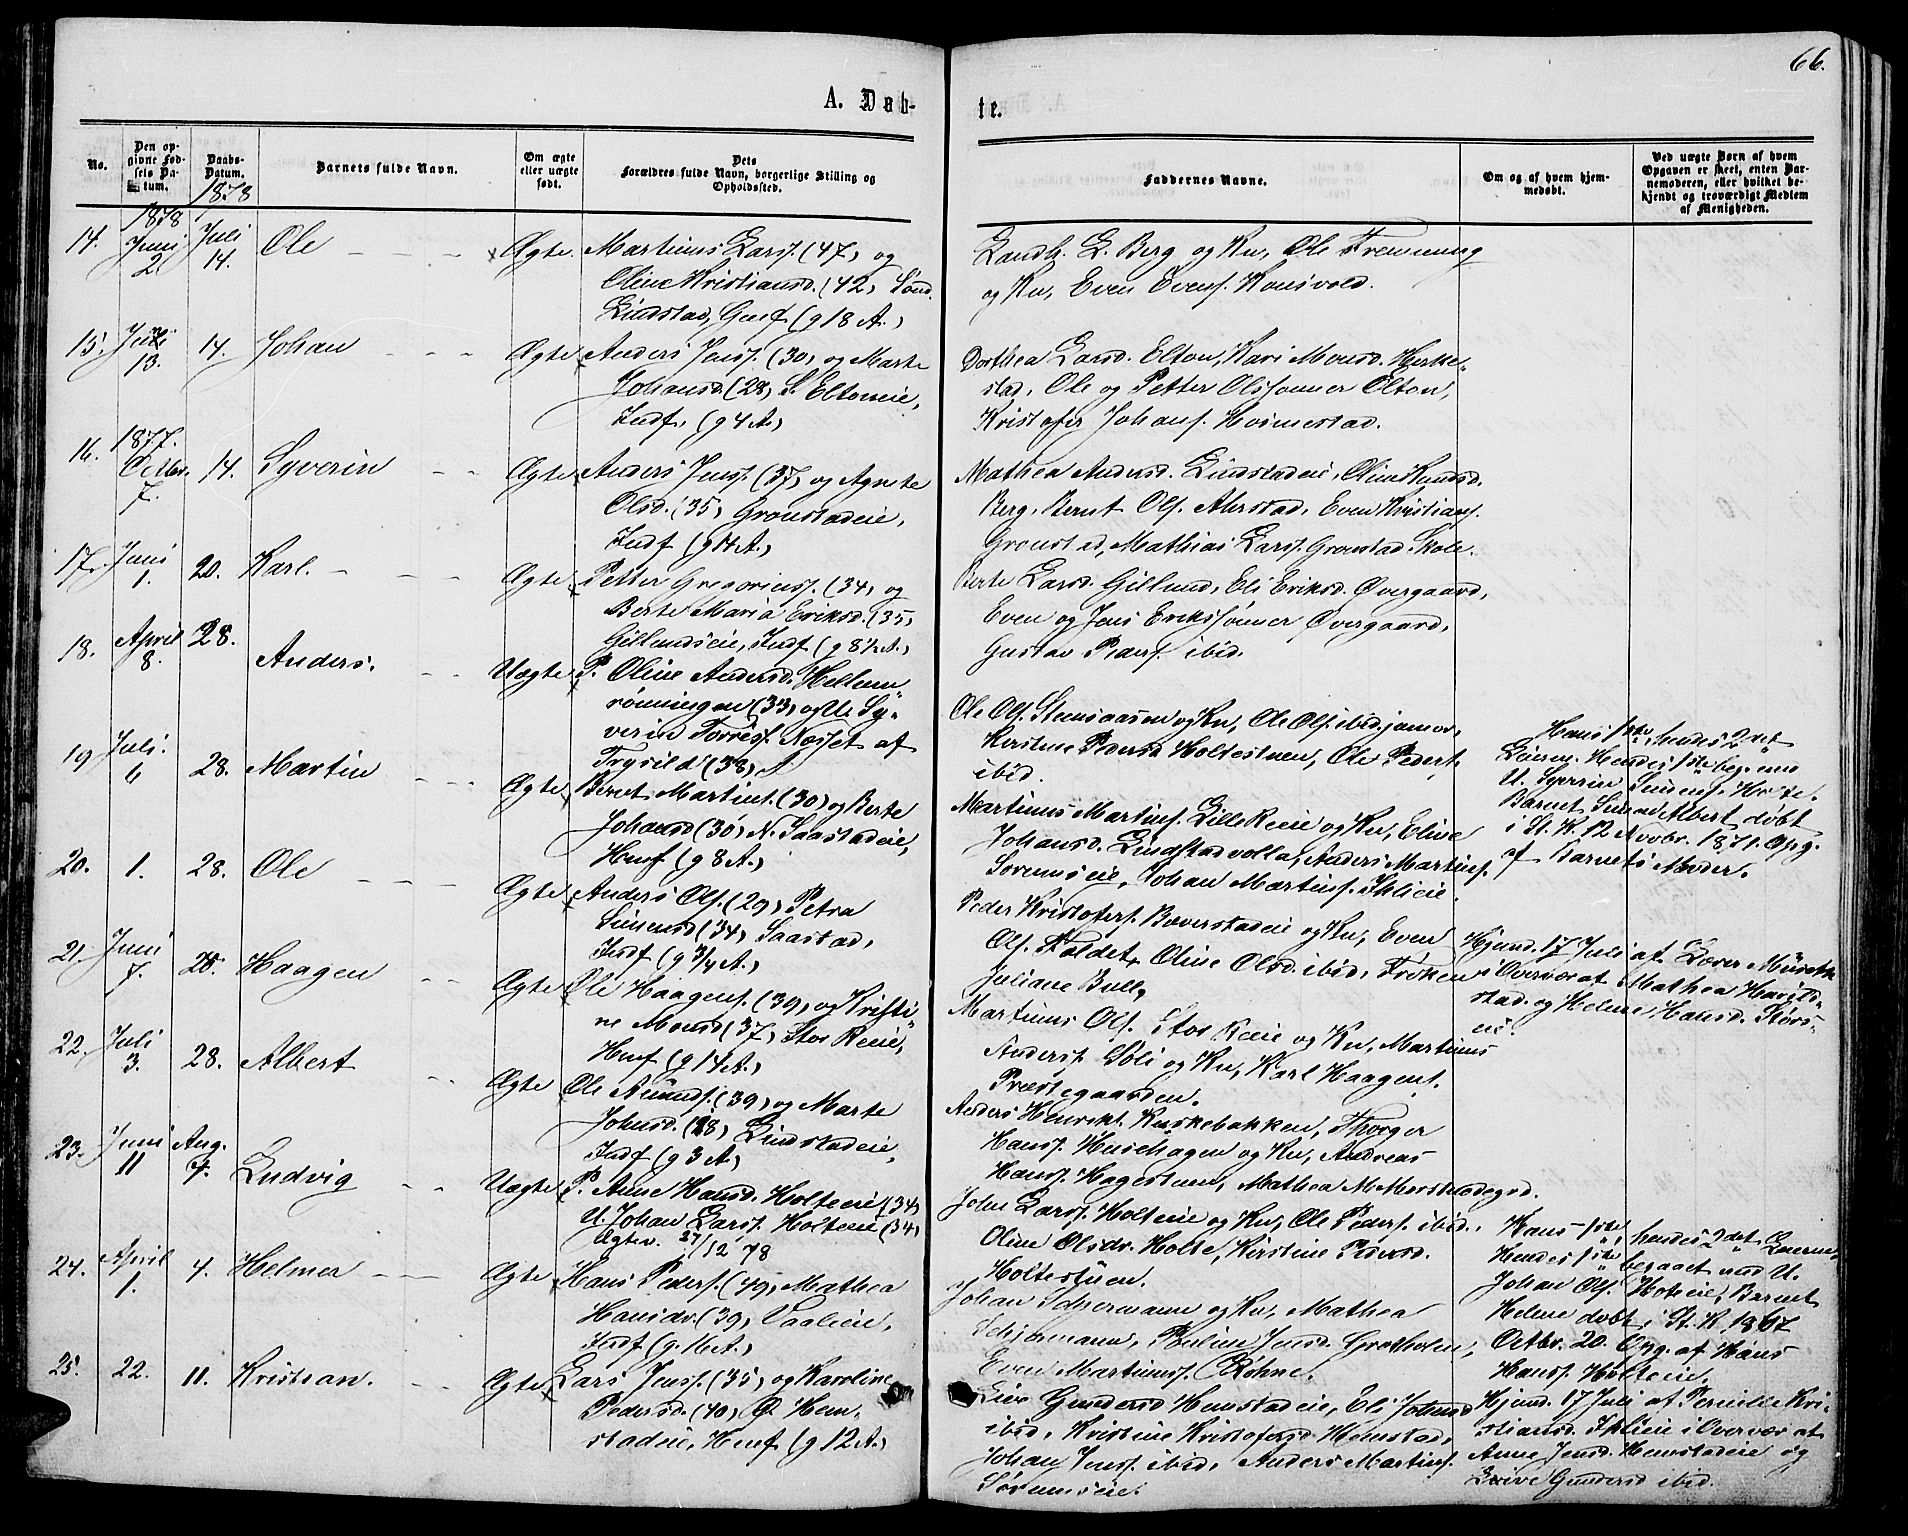 66.
A. Døb-
te.
No.
Den opgivne Fødsels Datum.
Daabs-Datum.
Barnets fulde Navn.
Om ægte eller uægte født.
Dets Forældres fulde Navn, borgerlige Stilling og Opholdssted.
Faddernes Navne.
Om og af hvem hjemmedøbt.
Ved uægte Børn af hvem Opgaven er skeet, enten Barnemoderen, eller hvilket bekjendt og troværdigt Medlem af Menigheden.
1878
1878
14. Juni 2. Juli 14. Ole Ægte. Martinus Larss. (47) og
Oline Kristiansd. (42) Sønd.
Lindstad, Gmf (g 18 A.)
Landh. L. Berg og Ku, Ole Fremming
og Ku, Even Evens. Konsvold.
15. Juni 13. 14. Johan Ægte Anders Jenss. (30) og Marte
Johansd (28) S. Eltoneie,
Indf. (g 4 A.)
Dorthea Larsd. Elton, Kari Monsd. Herke-
stad, Ole og Petter Olssønner Elton,
Kristofer Johans. Hornnestad.
16. 1877. Octbr. 7. 14. Syverin Ægte Anders Jenss. (37) og Agnete
Olsd. (35) Gronstadeie,
Indf (g 14 A.)
Mathea Andersd. Lindstadeie, Oline Knudsd.
Berg, Bernt Ols. Ahrstad, Even Kristians.
Gronstad, Mathias Larss. Gronstad Skole.
17. Juni 1. 20. Karl. Ægte Petter Gregoriuss. (34) og
Berte Maria Eriksd. (35)
Gillundseie, Indf (g 8½ A.)
Berte Larsd. Gillund, Eli Eriksd. Øvergaard,
Even og Jens Erikssønner Øvergaard,
Gustav Peders. ibid.
18. April 8. 28. Anders. Uægte P. Oline Andersd. Hellum
rønningen (33) og U. Sy-
verin Torress. Nosset af
Trysild (38)
Ole Ols. Stensaasen og Ku, Ole Ols. ibid. junior,
Kerstine Pedersd Holtestuen, Ole Peders.
ibid.
Hans 1ste, hendes 2det
Leierm. Hendes 1ste beg. med
U. Syverin Simens. Holte.
Barnet Simen Albert døbt
i St. K. 12 Novbr. 1871. Opg.
af Barnets Moder.
19 Juli 6 28. Martin Ægte Bernt Martins. (30) og Berte
Johansd (30) N. Saastadeie,
Hmf (g 8 A.)
Martinus Martins. Lille Reeie og Ku, Eline
Johansd. Lindstadvolla, Anders Martins.
Sørumseie, Johan Martins. Ihleie.
20. 1. 28. Ole Ægte Anders Ols. (29) Petra
Simensd (34) Saastad,
Indf (g ¾ A.)
Peder Kristofers. Bæverstadeie og Ku, Even
Ols. Faldet, Oline Olsd. ibid, Frøken
Juliane Bull,
21. Juni 7. 28. Haagen Ægte Ole Haagens. (39) og Kristi-
ne Monsd (37) Stor Reeie,
Hmf (g 14 A.)
Martinus Ols. Stor Reeie og Ku, Martinus
Anders. Soli og Ku, Karl Haagens.
Præstegaarden.
Hjemd. 17 Juli af Lærer
i Overvær af Mathea
stad. og Helene Hansd. Stors-
eie.
22. Juli 3. 28. Albert Ægte Ole Amunds. (39) og Marte
Johnsd. (38) Lindstadeie,
Indf (g 3 A.)
Anders Henriks. Kuskebakken, Thorger
Hanss. Husehagen og Ku, Andreas
Hanss. Hagestuen, Mathea M.
23. Juni 11 Aug. 4. Ludvig Uægte P. Anne Hansd. Holteeie (34)
U. Johan Larss. Holteeie (34)
Ægtev. 27/12 78
John Larss. Holteeie og Ku, Ole Peders. ibid.
Oline Olsdr. Holte, Kirstine Pedersd.
Holtestuen.
Hans 1ste, hendes 2det Leierm.
Hendes 1ste begaaet med U.
Johan Ols. Holteeie, Barnet
Helene døbt i St. K. 1867
Octbr. 20. Opg. af Hans
Hanss. Holteeie.
24. April 1. 4. Helmer Ægte Hans Peders. (49) Mathea
Hansdr. (39) Vaaleeie,
Indf (g. 16 A.)
Johan Schjermann og Ku, Mathea
Schjermann, Pauline Jensd. Grøtholen,
Even Martinuss. Röhne.
25. 22. 11. Kristian. Ægte Lars Jenss. (35) og Karoline
Pedersd. (40) Ø. Hem-
stadeie, Hmf (g 12 A.)
Live Gundersd Hemstadeie, Eli Johnsd
ibid, Kristine Kristofersd Hemstad,
Johan Jenss. ibid, Anders Martins.
Sørumseie.
Hjemd. 17 Juli af Pernille Kri-
stiansd. Ihleeie i Overvær af
Anne Jensd. Hemstadeie og
Live Gundersd ibid.